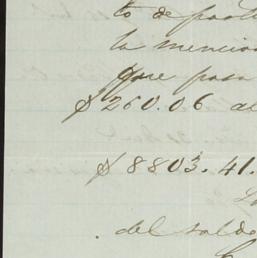 to de par
la mencio
que pasa
$260.06 al
$8803.41.
del saldo